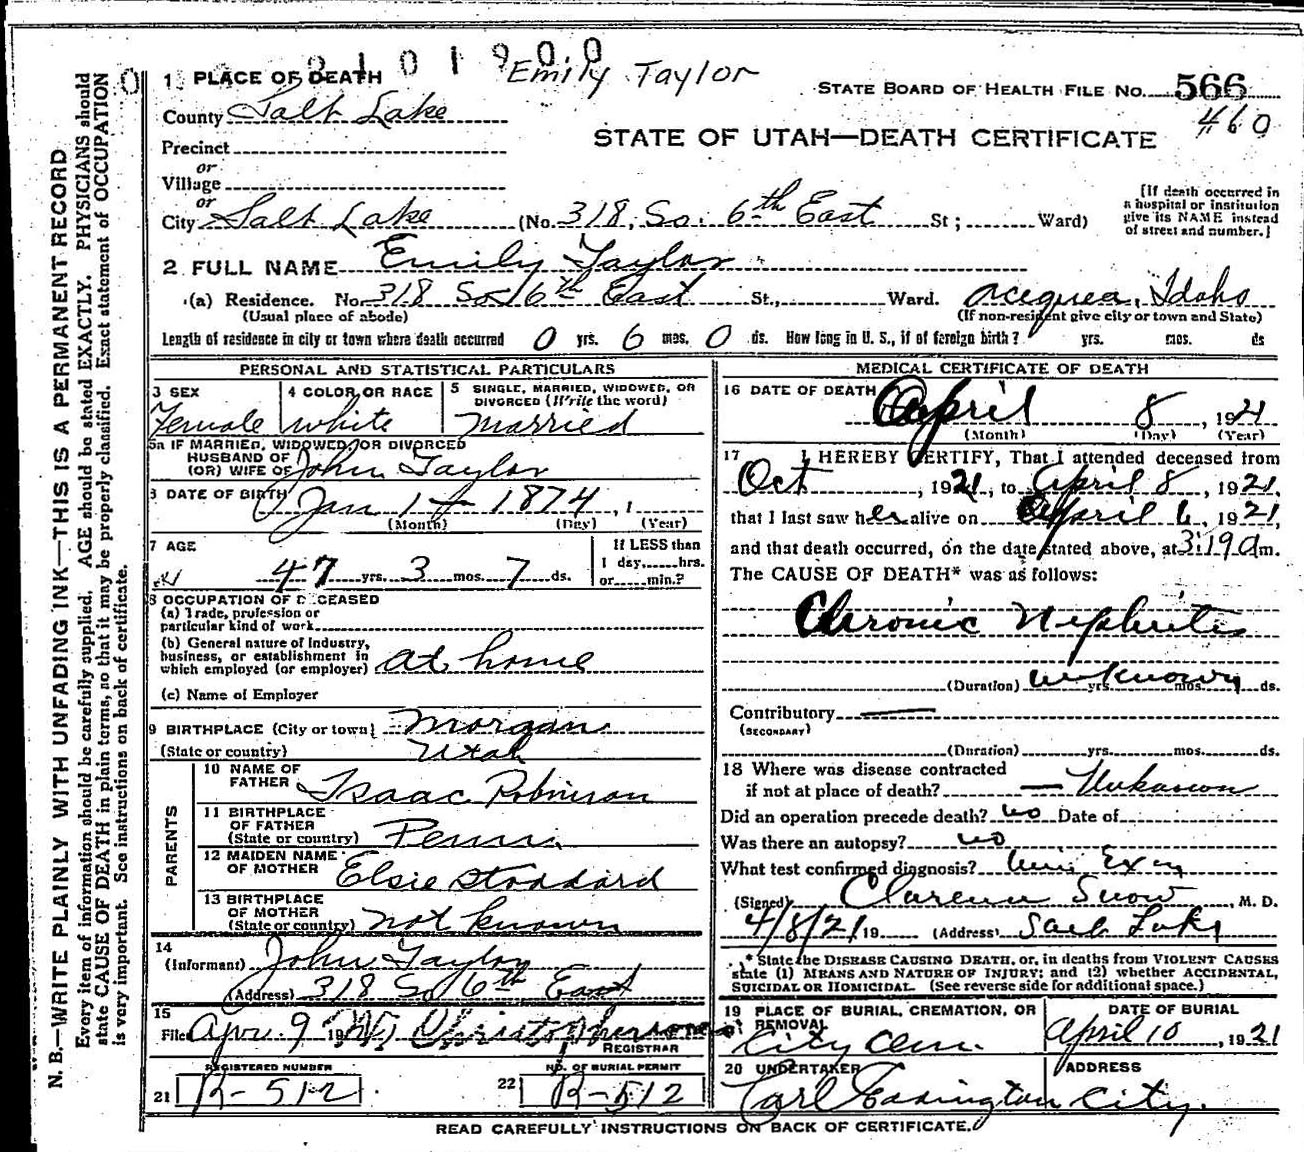 2101900
Emily Taylor
1 PLACE OF DEATH
STATE BOARD OF HEALTH FILE NO. 566
460
County Salt Lake
STATE OF UTAH—DEATH CERTIFICATE
Precinct
or
Village
or
City Salt Lake (No. 318 So. 6th East St; Ward)
[If death occurred in
a hospital or institution
give its NAME instead
of street and number.]
2 FULL NAME Emily Taylor
(a) Residence. No. 318 So 6th East St., Ward. Acequea, Idaho
(Usual place of abode) (If non-resident give city or town and State)
Length of residence in city or town where death occurred 0 yrs. 6 mos. 0 ds. How long in U. S., if of foreign birth? yrs. mos. ds
PERSONAL AND STATISTICAL PARTICULARS
3 SEX
Female
4 COLOR OR RACE
white
5 SINGLE, MARRIED, WIDOWED, OR
DIVORCED (Write the word)
Married
5a IF MARRIED, WIDOWED, OR DIVORCED
HUSBAND OF
(OR) WIFE OF John Taylor
6 DATE OF BIRTH Jan 1st 1874, 1
(Month) (Day) (Year)
7 AGE
47 yrs. 3 mos. 7 ds.
If LESS than
1 day, hrs.
or min.?
8 OCCUPATION OF DECEASED
(a) Trade, profession or
particular kind of work
(b) General nature of Industry,
business, or establishment in
which employed (or employer) at home
(c) Name of Employer
9 BIRTHPLACE (City or town) Morgan
(State or country) Utah
PARENTS
10 NAME OF
FATHER Isaac Robinson
11 BIRTHPLACE
OF FATHER
(State or country) Penn.
12 MAIDEN NAME
OF MOTHER Elsie Stoddard
13 BIRTHPLACE
OF MOTHER
(State or country) not known
14
(Informant) John Taylor
(Address) 318 So 6th East
15
Filed Apr. 9 19
Christophersons
REGISTRAR
REGISTERED NUMBER
21 R-512
NO. OF BURIAL PERMIT
22 R-512
MEDICAL CERTIFICATE OF DEATH
16 DATE OF DEATH
April 8, 1921
(Month) (Day) (Year)
17 I HEREBY CERTIFY, That I attended deceased from
Oct, 1921, to April 8, 1921,
that I last saw her alive on April 6, 1921,
and that death occurred, on the date stated above, at 3:19 a m.
The CAUSE OF DEATH* was as follows:
Chronic Nephritis
(Duration) unknown yrs. mos. ds.
Contributory —
(SECONDARY)
(Duration) yrs. mos. ds.
18 Where was disease contracted
if not at place of death? — Unknown
Did an operation precede death? no Date of
Was there an autopsy? no
What test confirmed diagnosis? Urin Exam
(Signed) Clarence Snow, M. D.
4/8/21 19 (Address) Salt Lake
* State the DISEASE CAUSING DEATH, or, in deaths from VIOLENT CAUSES
state (1) MEANS AND NATURE OF INJURY; and (2) whether ACCIDENTAL,
SUICIDAL OR HOMICIDAL. (See reverse side for additional space.)
19 PLACE OF BURIAL, CREMATION, OR
REMOVAL
City Cem.
DATE OF BURIAL
April 10, 1921
20 UNDERTAKER
Carl Eddington
ADDRESS
City.
READ CAREFULLY INSTRUCTIONS ON BACK OF CERTIFICATE.
N. B.—WRITE PLAINLY WITH UNFADING INK—THIS IS A PERMANENT RECORD
Every item of information should be carefully supplied. AGE should be stated EXACTLY. PHYSICIANS should
state CAUSE OF DEATH in plain terms, so that it may be properly classified. Exact statement of OCCUPATION
is very important. See instructions on back of certificate.